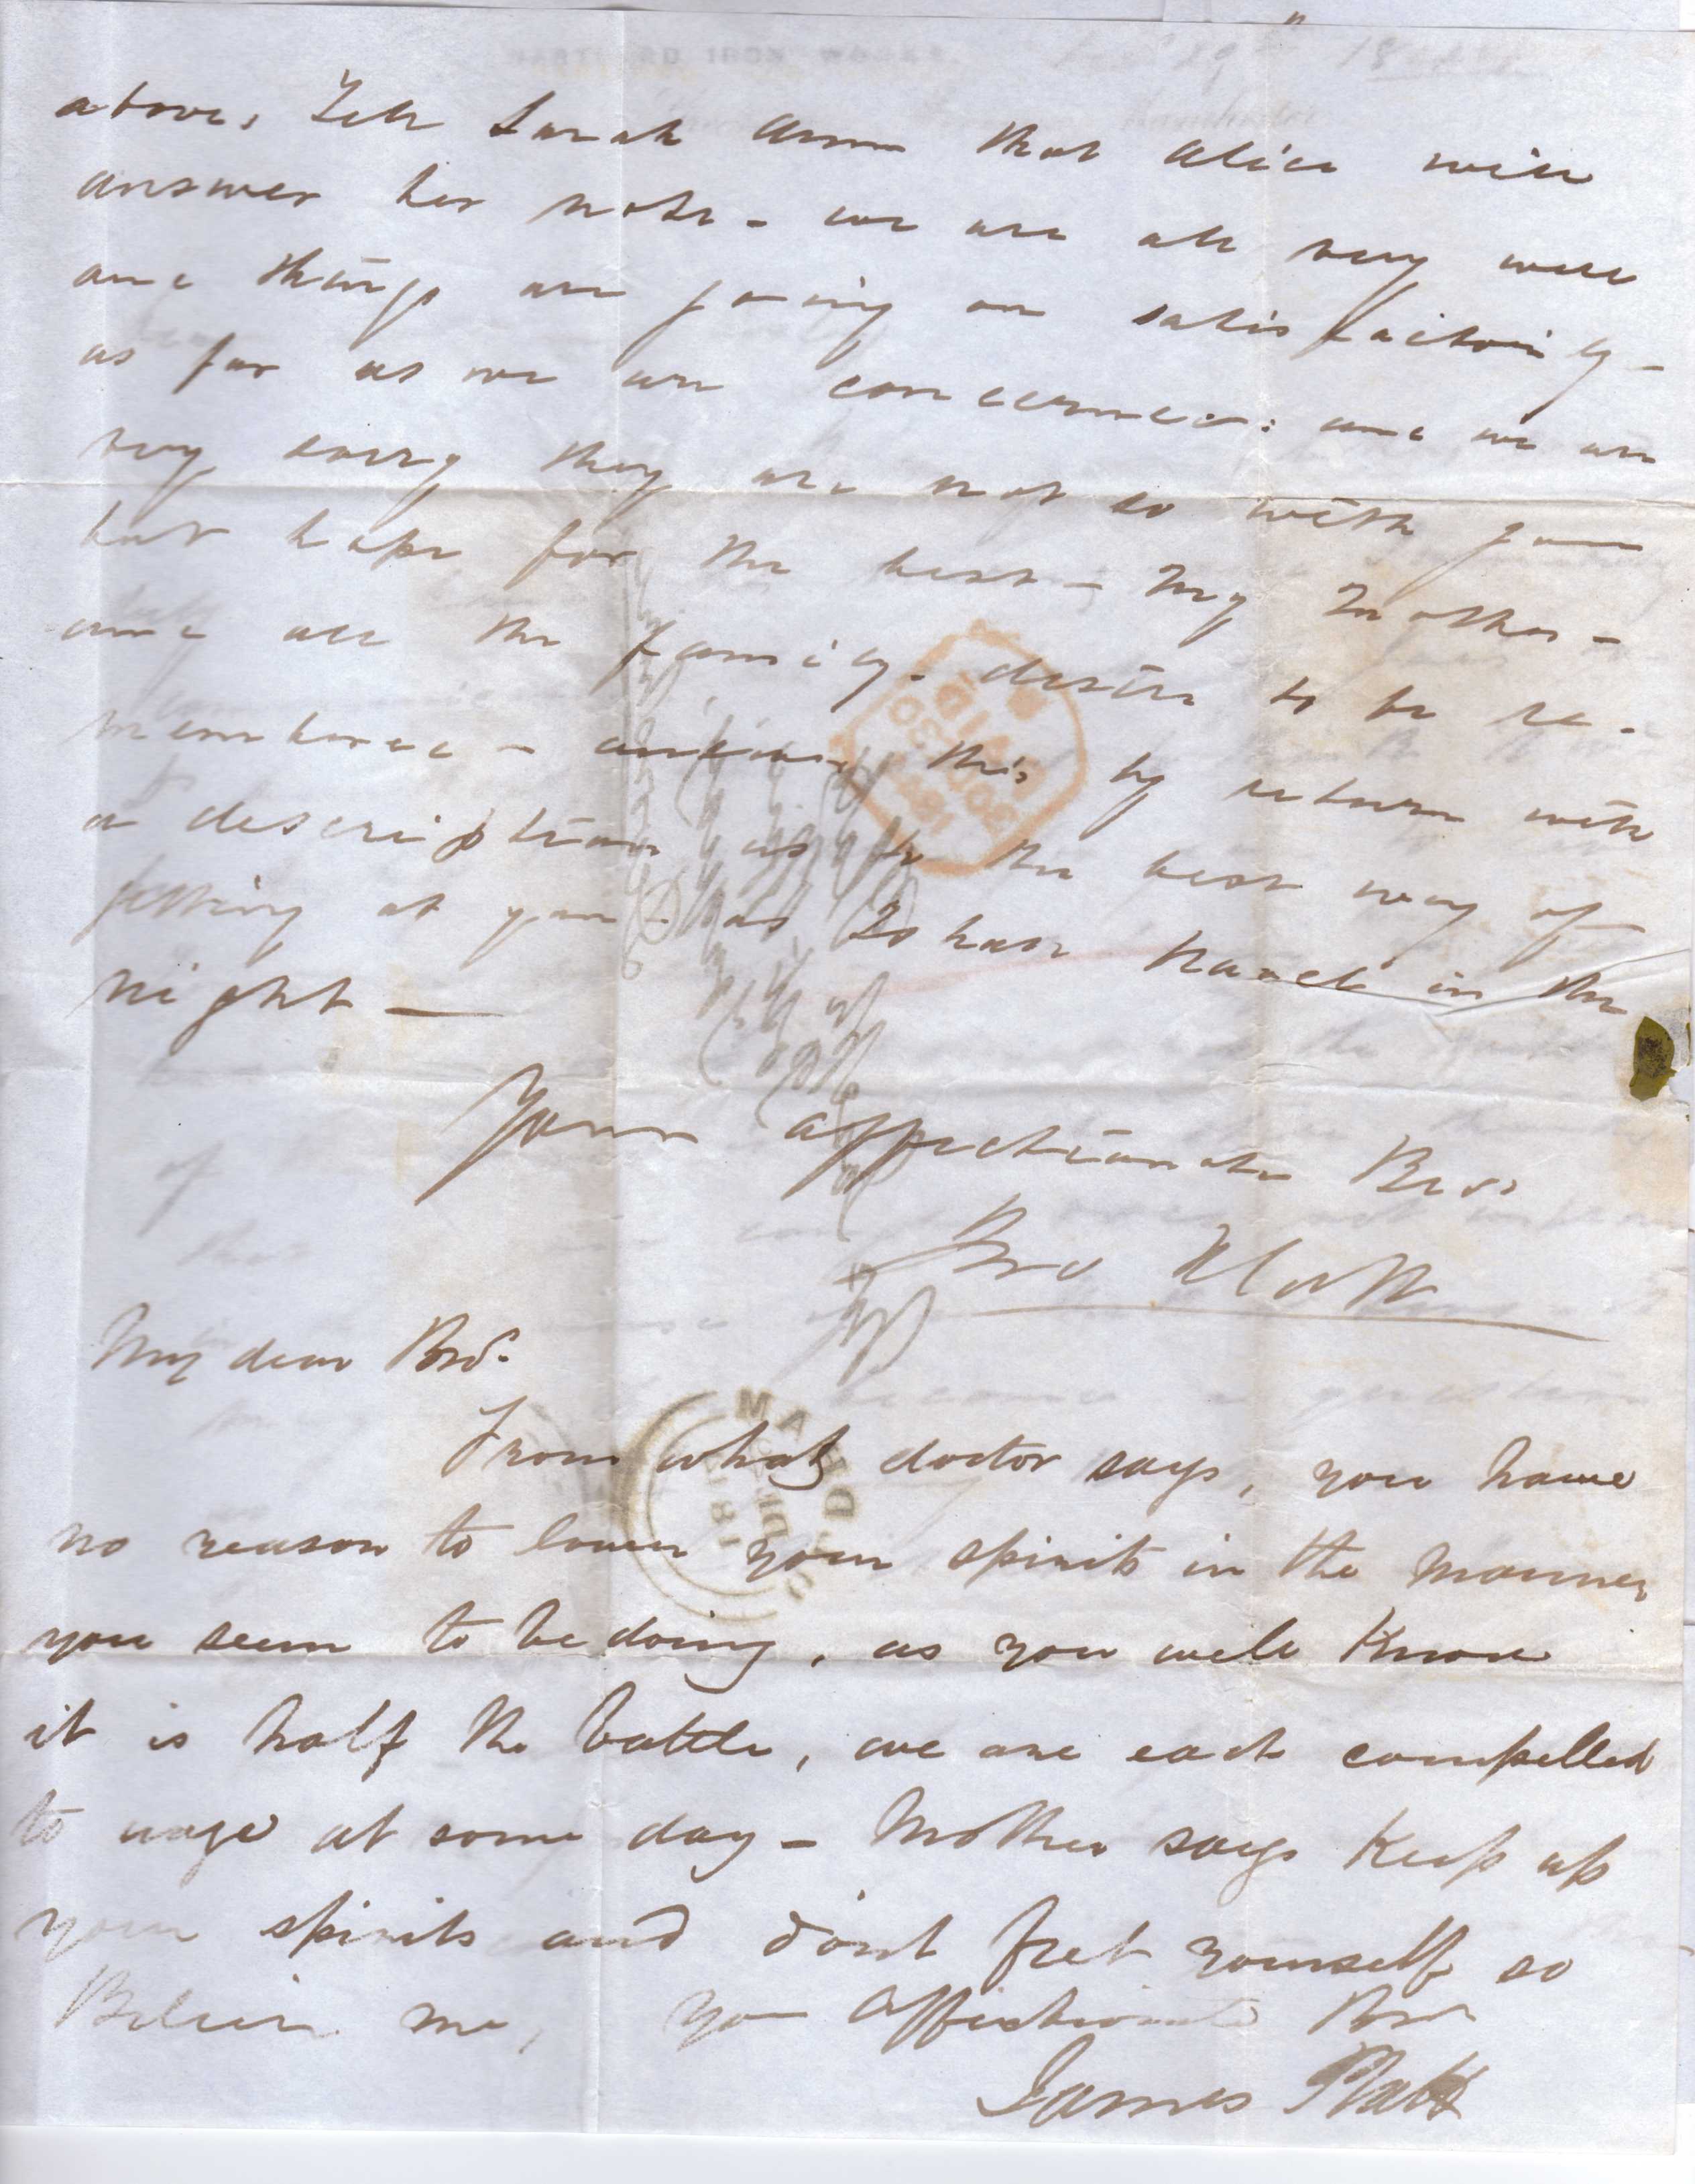 HARTFORD IRON WORKS
above, Tell Sarah Ann that Alice will
answer her note - we are all very well
and things are going on satisfactorily -
as far as we are concerned: and we are
very sorry they are not so with you
but hope for the best - My Mother -
and all the family. desire to be re-
membered - answer this by return with
a description as to the best way of
getting at you - as I shall travel in the
night —
Your affectionate Bro.
Platt
My dear Bro.
From what doctor says, you have
no reason to lower your spirits in the manner
you seem to be doing, as you well know
it is half the battle, we are each compelled
to at some day - Mother says keep up
your spirits and dont fret yourself so
Believe me, you Affectionate Bro
James Platt